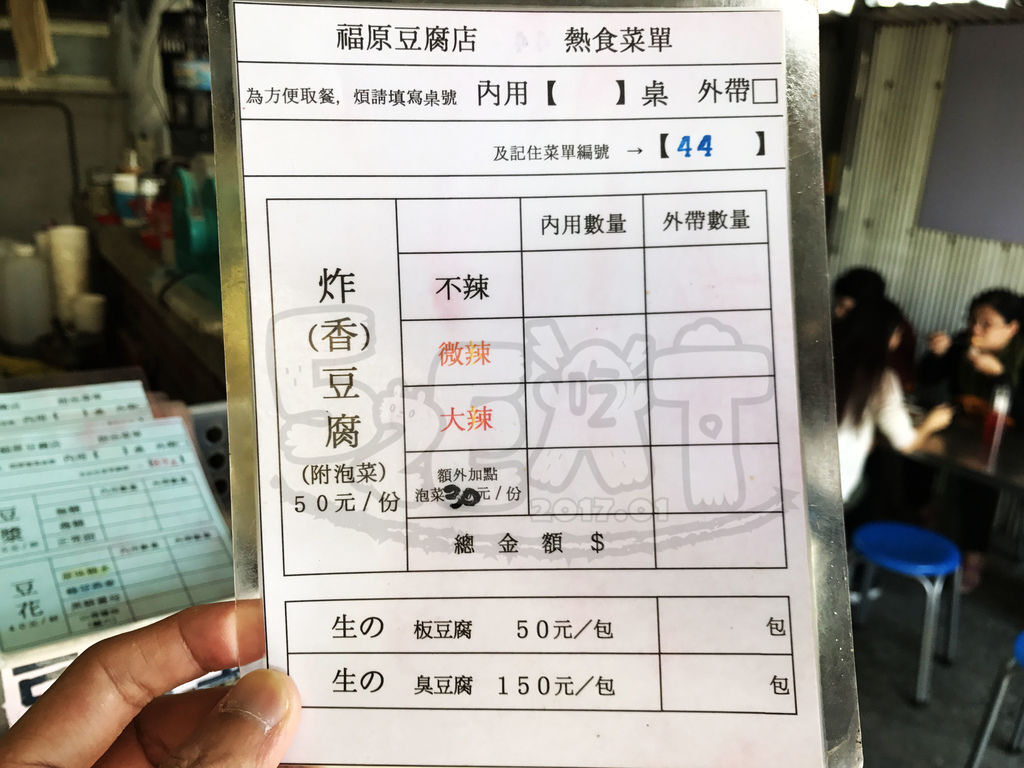 福原豆腐店 熱食菜單
為方便取餐, 煩請填寫桌號 內用【 】桌 外帶□
及記住菜單編號 → 【44 】
內用數量 外帶數量
炸(香)豆腐
(附泡菜)
50元/份
不辣
微辣
大辣
額外加點
泡菜30元/份
總金額 $
生の 板豆腐 50元/包 包
生の 臭豆腐 150元/包 包
吃
2017.01
豆漿
豆花